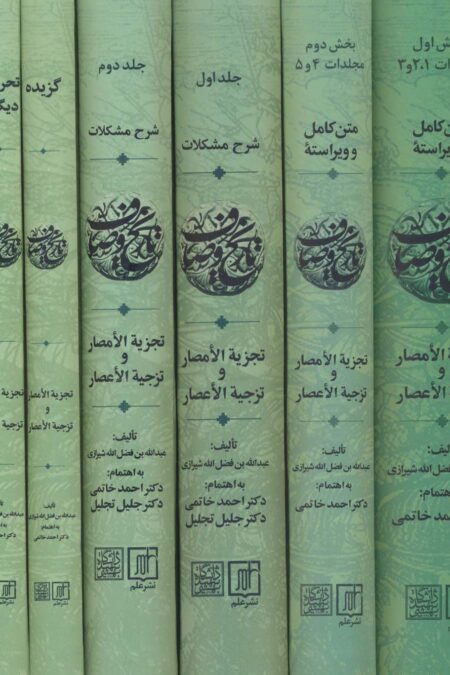 ش اول
ت ۲،۱ و ۳
ن کامل
یراستهٔ
تاریخ وصاف
ة الأمصار
و
ة الأعصار
تألیف:
عبدالله بن فضل الله شیرازی
به اهتمام:
دکتر احمد خاتمی
نشر علم
بخش دوم
مجلدات ۴ و ۵
متن کامل
و ویراستهٔ
تاریخ وصاف
تجزیة الأمصار
و
تزجیة الأعصار
تألیف:
عبدالله بن فضل الله شیرازی
به اهتمام:
دکتر احمد خاتمی
نشر علم
جلد اول
شرح مشکلات
تاریخ وصاف
تجزیة الأمصار
و
تزجیة الأعصار
تألیف:
عبدالله بن فضل الله شیرازی
به اهتمام:
دکتر احمد خاتمی
دکتر جلیل تجلیل
نشر علم
جلد دوم
شرح مشکلات
تاریخ وصاف
تجزیة الأمصار
و
تزجیة الأعصار
تألیف:
عبدالله بن فضل الله شیرازی
به اهتمام:
دکتر احمد خاتمی
دکتر جلیل تجلیل
نشر علم
گزیده
تاریخ وصاف
تجزیة الأمصار
و
تزجیة الأعصار
تألیف:
عبدالله بن فضل الله شیرازی
به اهتمام:
دکتر احمد خاتمی
تحر
دیگ
تجزیة
و
تزجیة